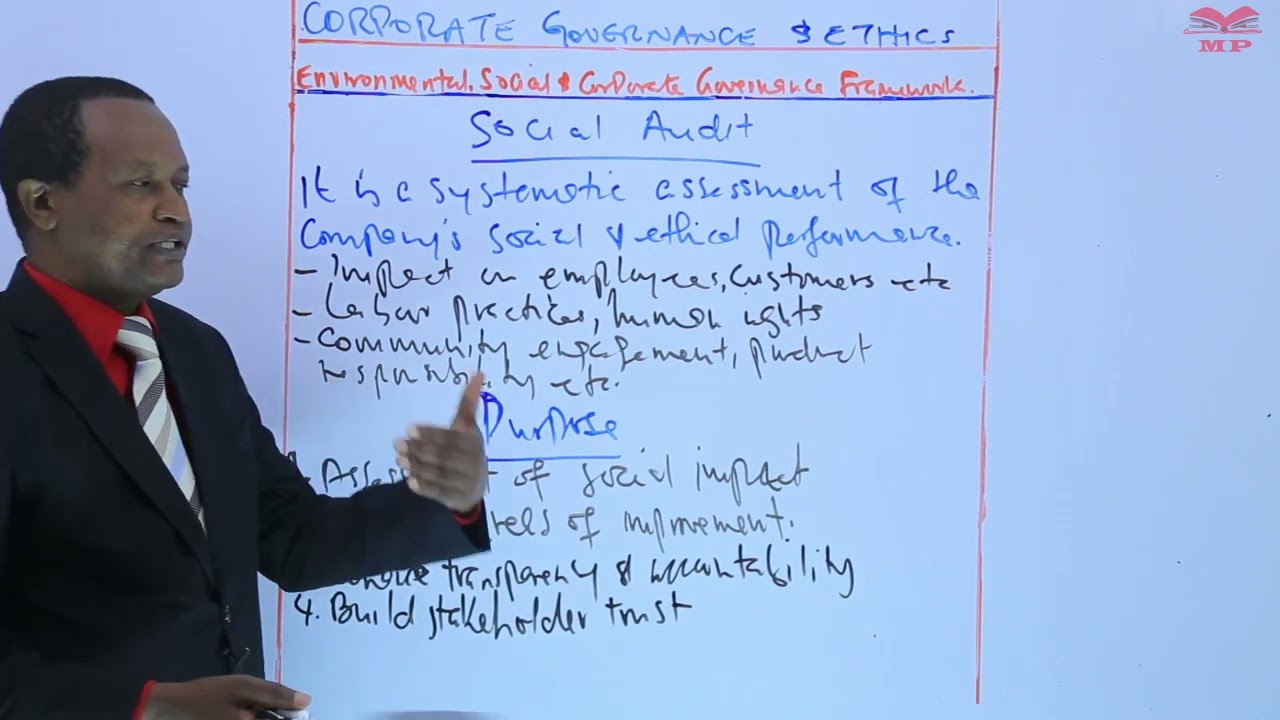 CORPORATE GOVERNANCE & ETHICS
MP
Environmental. Social & Corporate Governance Framework.
Social Audit
It is a systematic assessment of the
Company's social & ethical performance.
- Impact on employees, customers etc
- Labour practices, human rights
- Community engagement, product
responsibility etc.
Purpose
of social impact
of improvement.
transparency & accountability
4. Build stakeholder trust